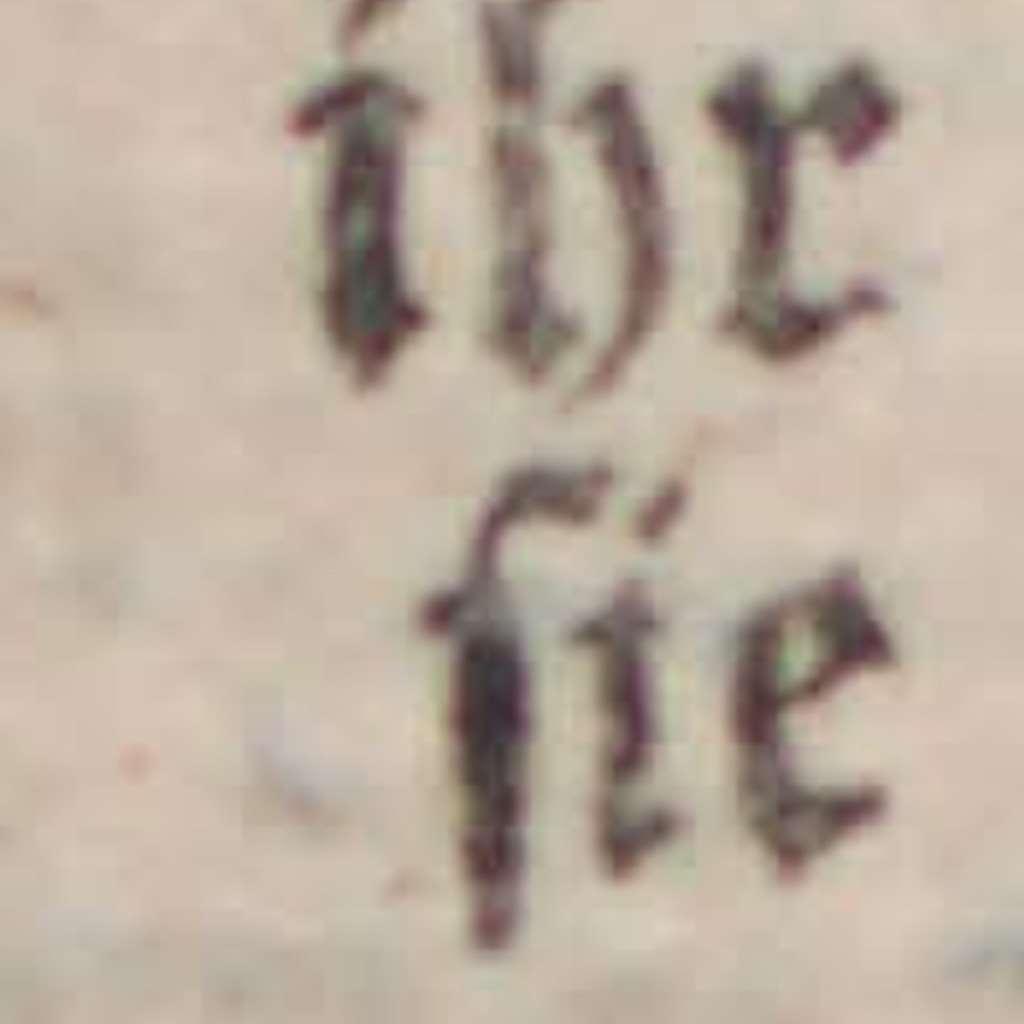 ihr
ſie